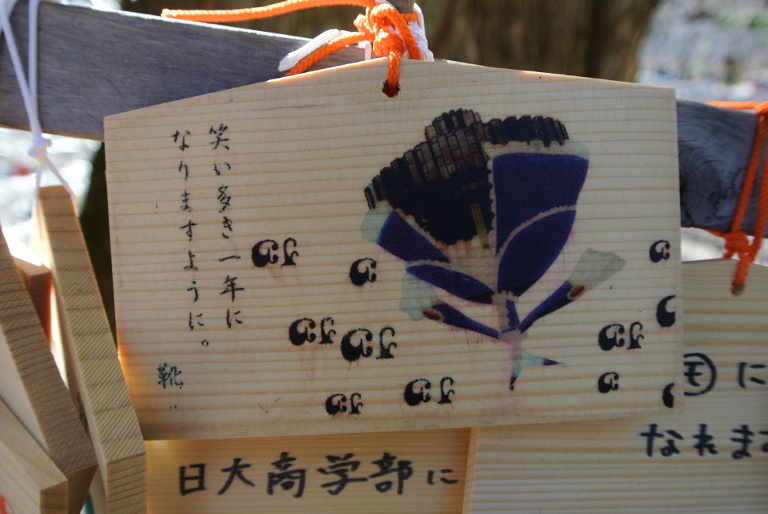 笑い多き一年に
なりますように。
靴
日大商学部に
モに
なれま